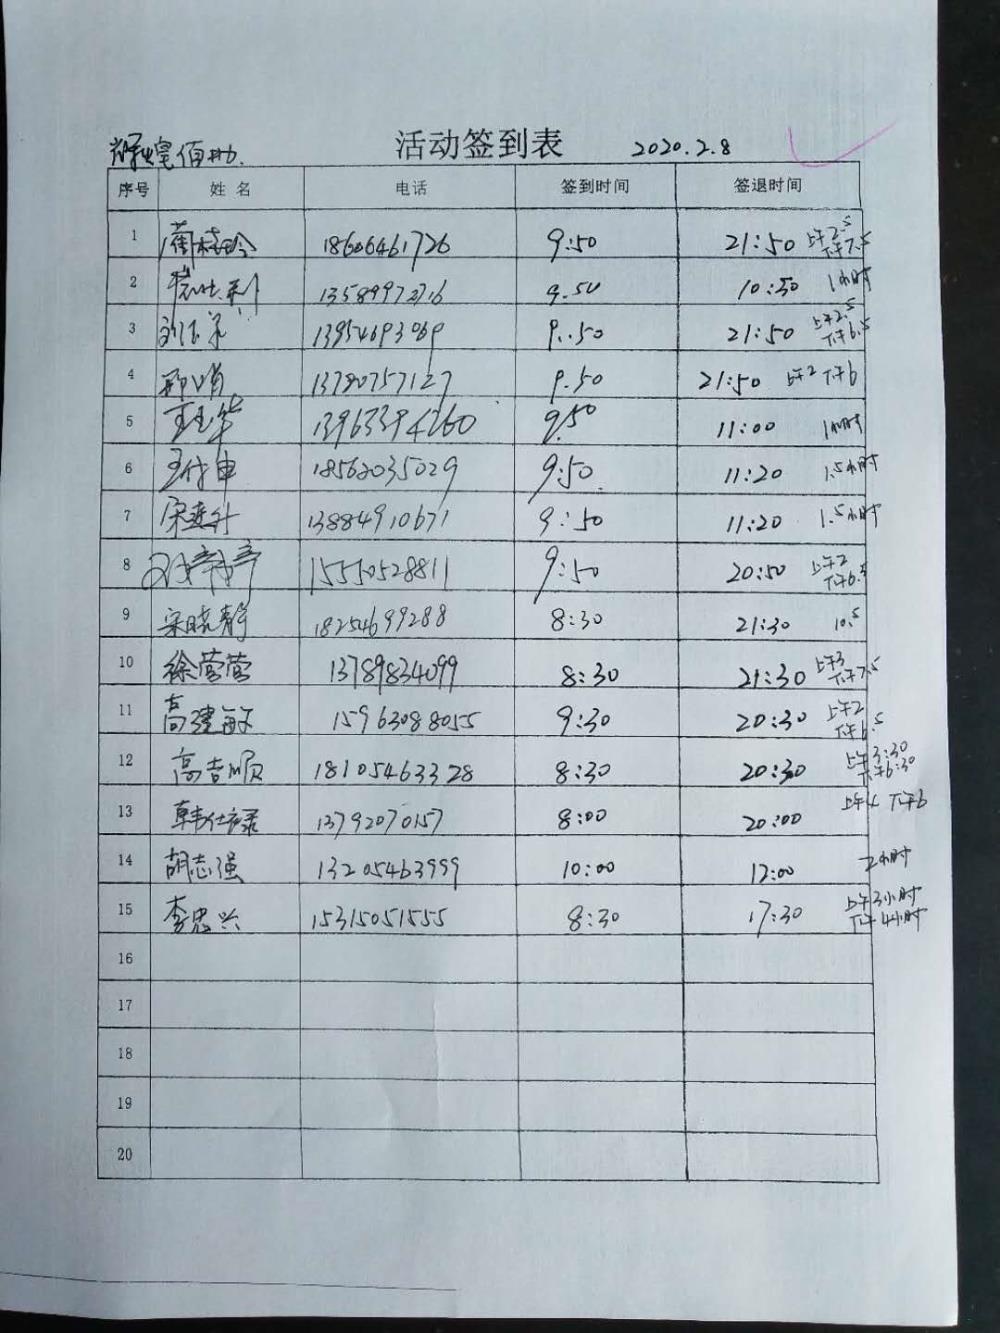 佰助.
活动签到表 2020.2.8
序号 姓名 电话 签到时间 签退时间
1 18606461726 9:50 21:50 上午2.5 下午7.5
2 9.50 10:30 1小时
3 13954693069 9..50 21:50 上午2.5 下午6.5
4 13780757127 9.50 21:50 上午2 下午6
5 王玉华 9.50 11:00 1小时
6 王付申 18562035029 9:50. 11:20 1.5小时
7 宋连升 13884910671 9:50 11:20 1.5小时
8 15550528811 9:50 20:50 上午2 下午6.5
9 宋晓静 18254699288 8:30 21:30 10.5
10 徐营营 13789834099 8:30 21:30 上午3 下午7.5
11 高建敏 15963088055 9:30 20:30 上午2 下午6.5
12 高吉顺 18105463328 8:30 20:30 上午3:30 下午6:30
13 韩仕禄 13792070157 8:00 20:00 上午4 下午6
14 胡志强 13205463999 10:00 12:00 2小时
15 李忠兴 15315051555 8:30 17:30 上午3小时 下午4小时
16
17
18
19
20